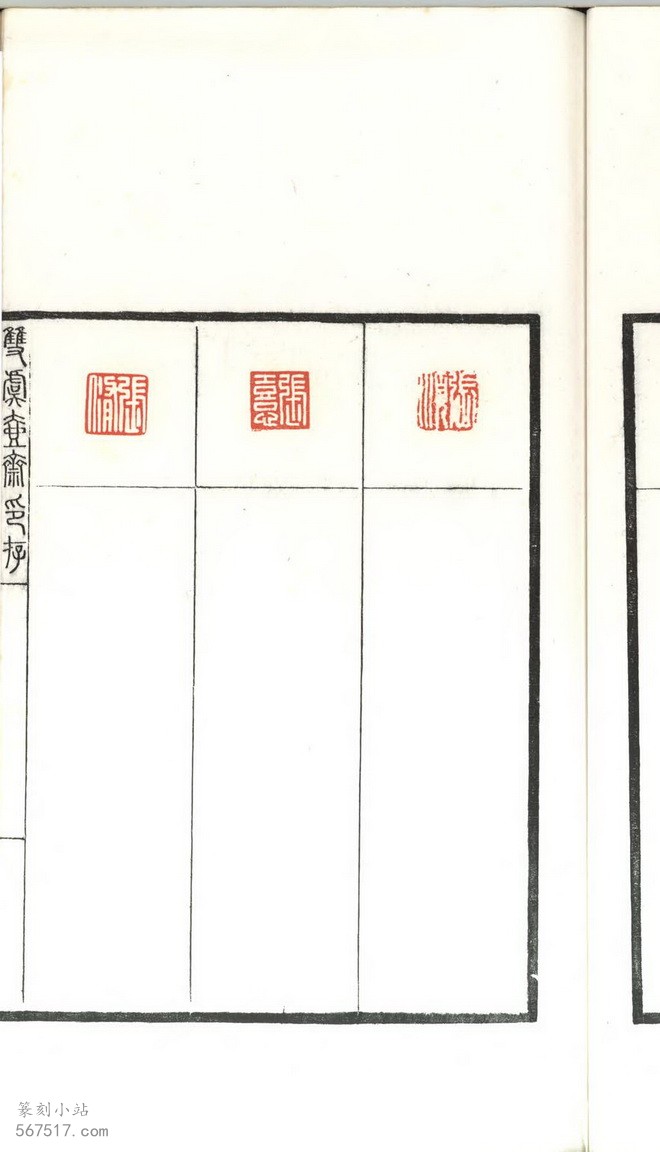 張
張憙
張脩
雙虞壺齋印存
篆刻小站
567517.com